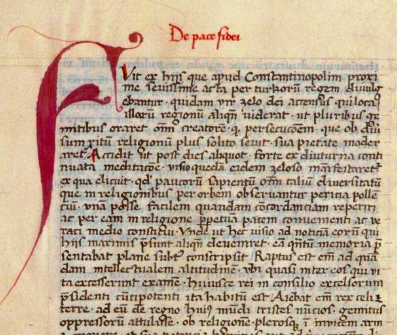 De pace fidei
Fuit ex hijs que apud Constantinopolim proxi
me seuissime acta per turkorū regem diuulg
ebantur · quidam vir zelo dei accensus · qui loca
illorū regionū aliqn̄ viderat · ut pluribus ge
mitibus oraret om̄ creatorē · q̧ persecucōem · que ob diū
sum ritū religionū plus solito seuit · sua pietate moder
aret᷑ · Accidit ut post dies aliquot · forte ex diuturna conti
nuata meditacōe · visio quedā eidem zeloso manifestaret᷑
ex qua elicuit · qd' paucorū sapientū om̄ taliū diuersitatū
que in religionibus per orbem obseruantur pericia pollē
ciū · vnā posse facilem quandam cōcordanciam reperiri
ac per eam in religione p̱petuā pacem conuenienti ac ve
raci medio constitui · Vnde ut hec visio ad noticiā eorū qui
hijs maximis p̄sunt aliqn̄ deueniret · eā qn̄tū memoria p̄
sentabat plane subt' conscripsit · Raptus est em̄ ad quā
dam intellectualem altitudinē · vbi quasi inter eos qui vi
ta excesserunt examē · huiusce rei in consilio excelsorum
p̄sidenti cūctipotenti ita habitū est · Aiebat em̄ rex celi et
terre · ad eū de regno hui᷒ mūdi tristes nūcios · gemitus
oppressorū attulisse · ob religionē plerosq̧ ī inuicem arm